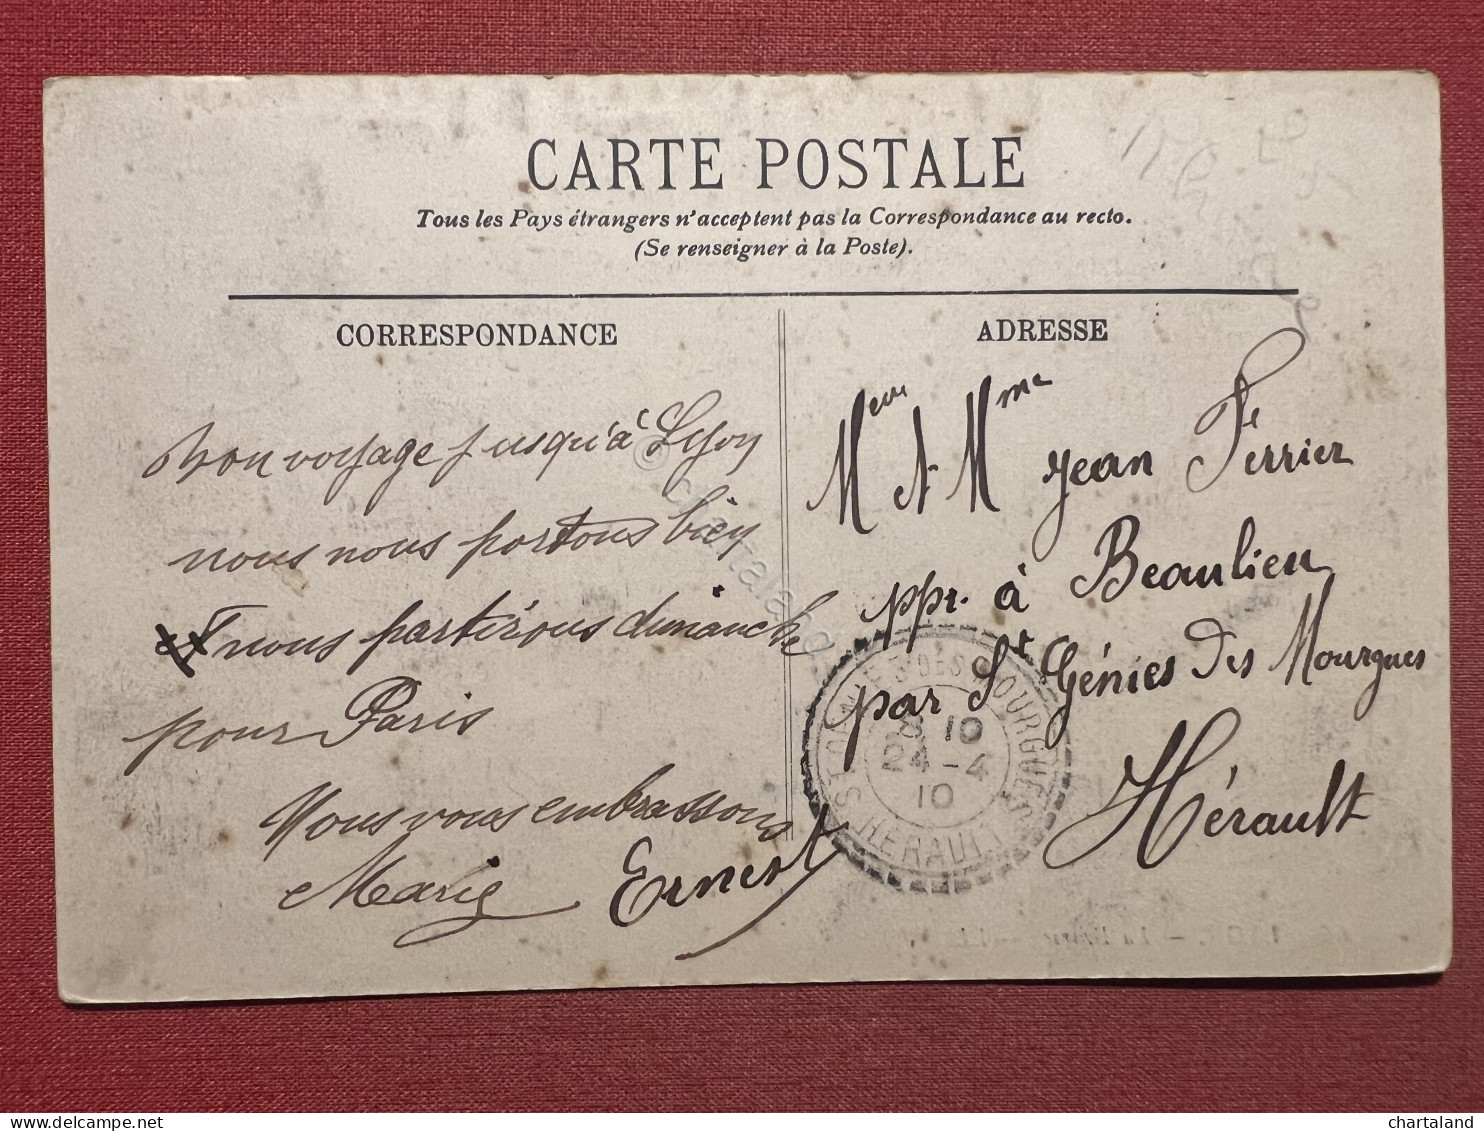 CARTE POSTALE
Tous les Pays étrangers n'acceptent pas la Correspondance au recto.
(Se renseigner à la Poste).
CORRESPONDANCE
Bon voyage jusqu'à Lyon
nous nous portons bien
et nous partirons dimanche
pour Paris
Nous vous embrassons
Marie Ernest
ADRESSE
Meur et Mme Jean Ferrier
ppr. à Beaulieu
par St Génies des Mourgues
Hérault
ST GENIES DES MOURGUES
8 10
24 - 4
10
HERAULT
© chartaland
delcampe.net
chartaland